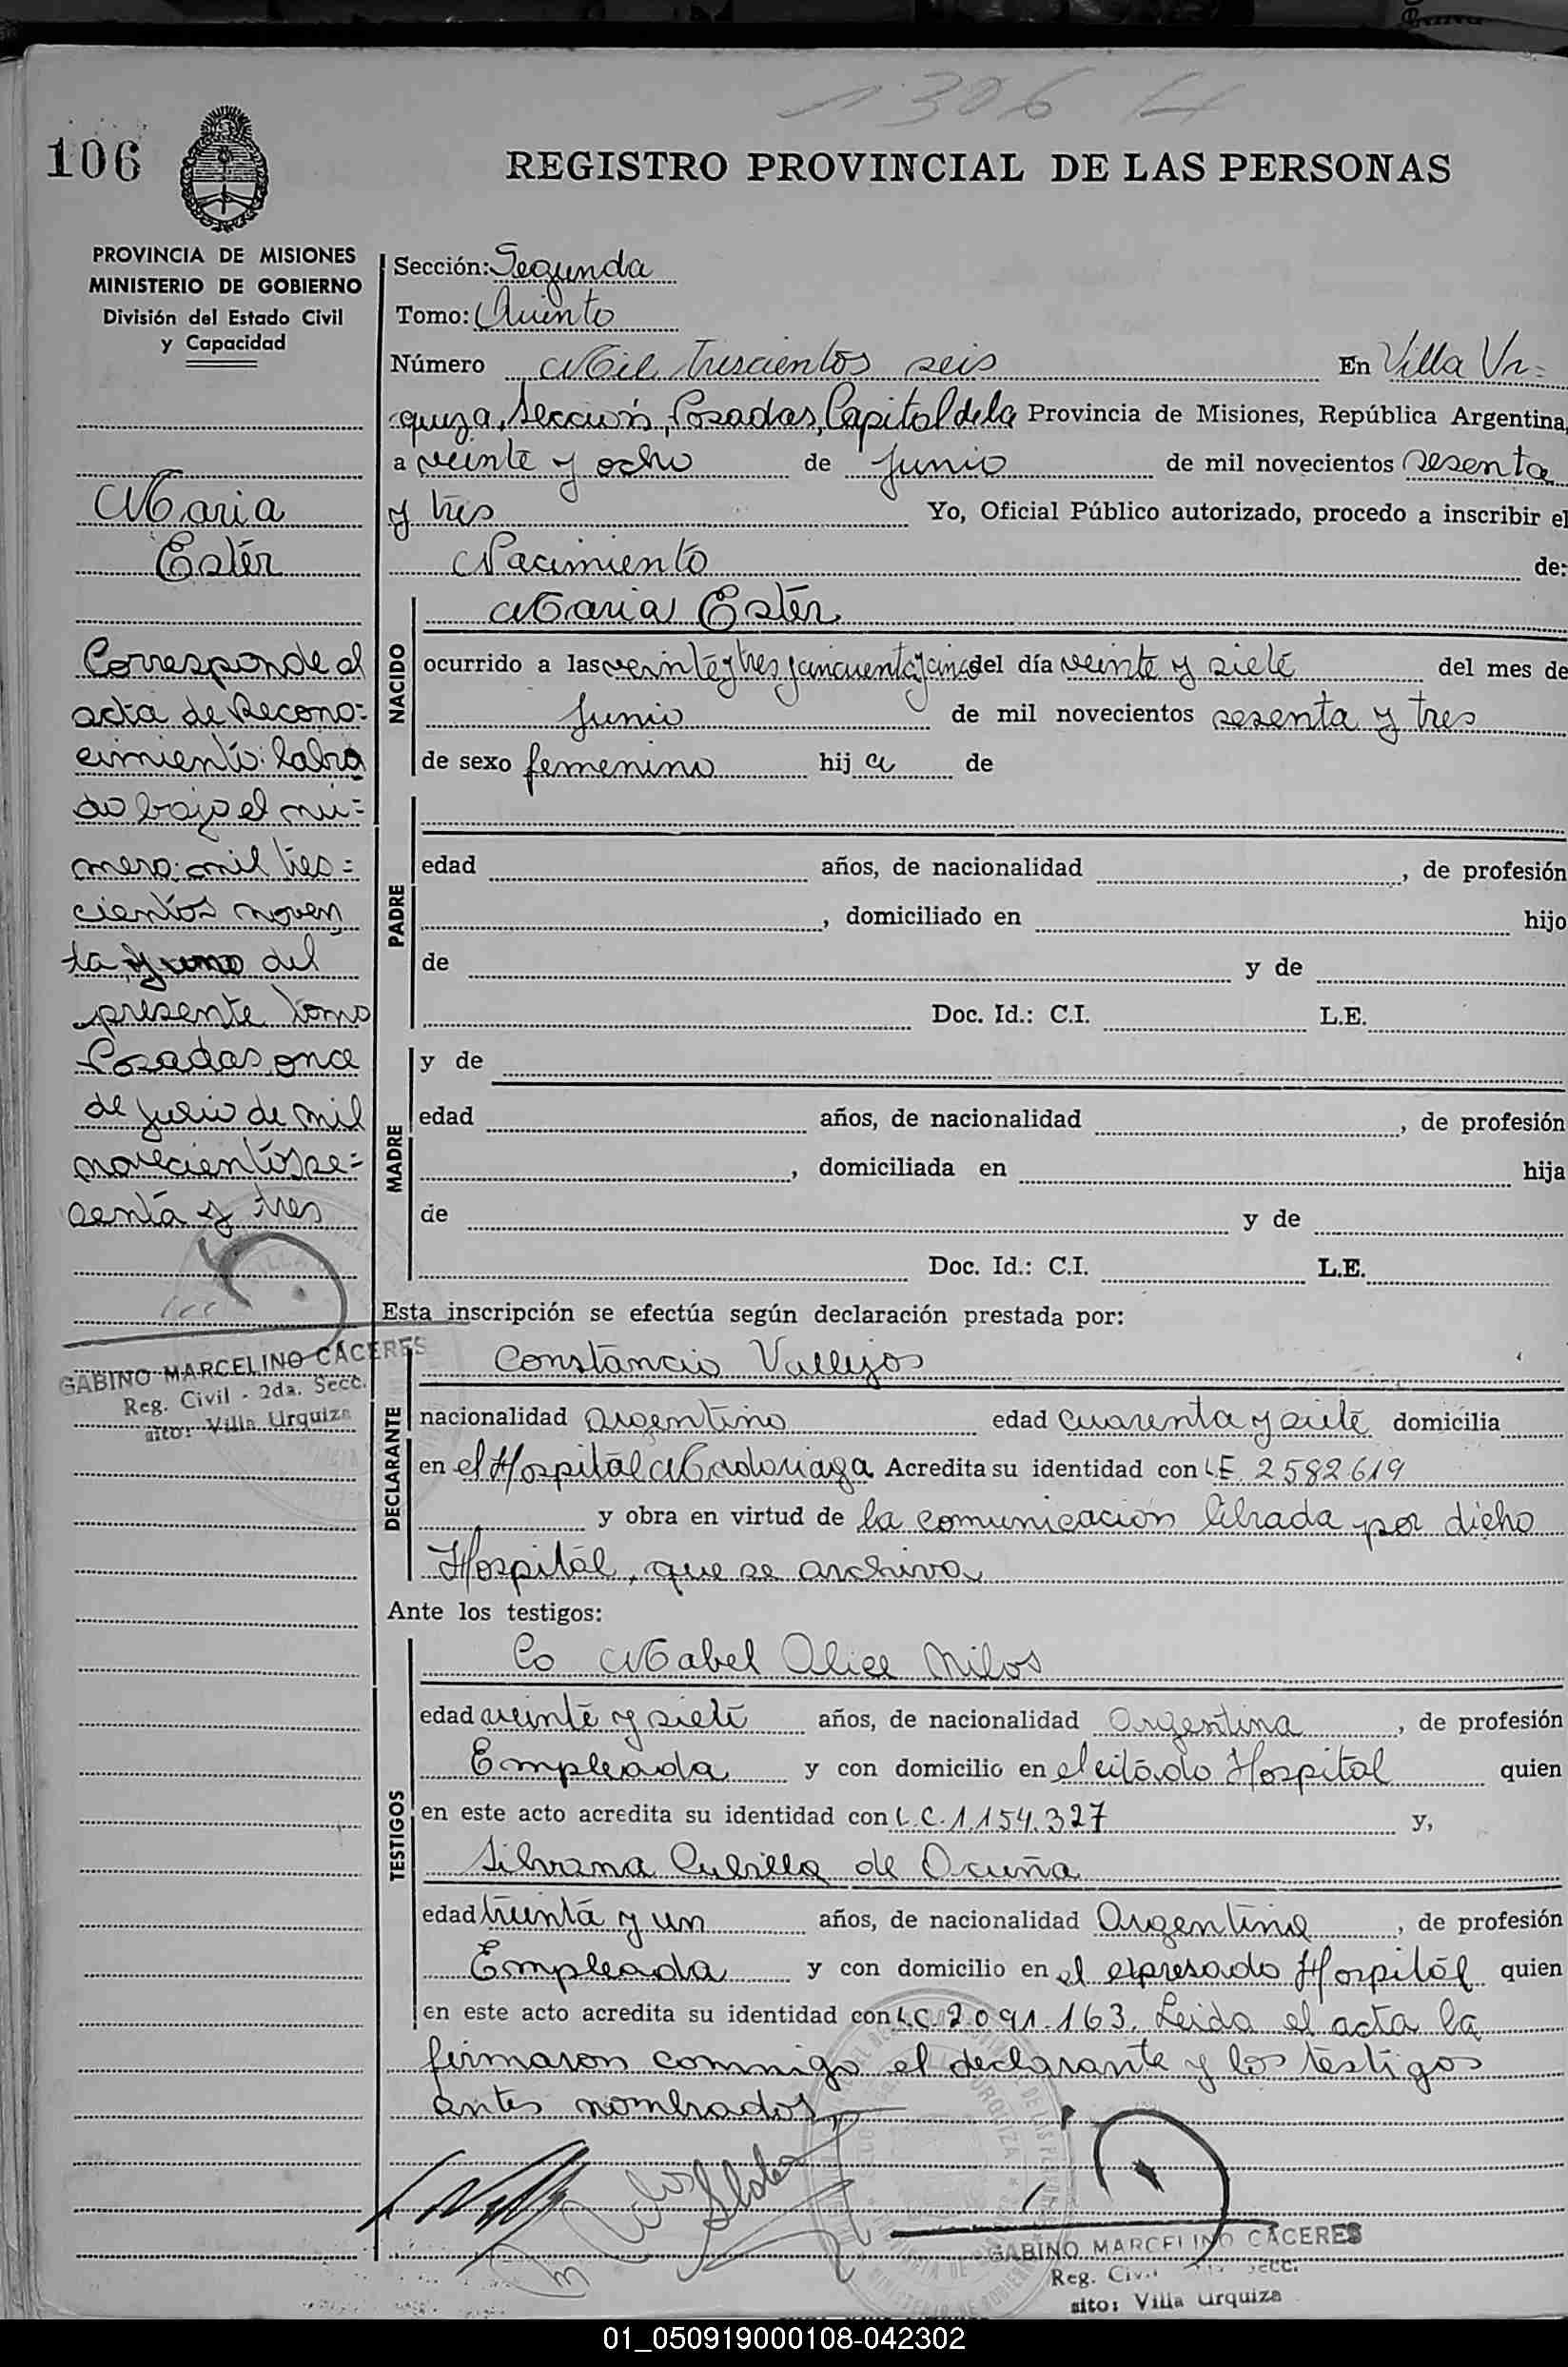 1306
106
REGISTRO PROVINCIAL DE LAS PERSONAS
PROVINCIA DE MISIONES
MINISTERIO DE GOBIERNO
División del Estado Civil
y Capacidad
Maria
Estér
Corresponde al
acta de Recono=
cimiento labra
do bajo el nú=
mero mil tres=
cientos noven
ta y uno del
presente tomo
Posadas, once
de julio de mil
novecientos se=
senta y tres
GABINO MARCELINO CACERES
Reg. Civil - 2da. Secc.
sito: Villa Urquiza
Sección: Segunda
Tomo: Quinto
Número Mil Trescientos seis En Villa Ur=
quiza, Sección, Posadas, Capital de la Provincia de Misiones, República Argentina,
a veinte y ocho de Junio de mil novecientos sesenta
y tres Yo, Oficial Público autorizado, procedo a inscribir el
Nacimiento de:
NACIDO
Maria Estér
ocurrido a las veinte y tres y cincuenta y cinco del día veinte y siete del mes de
Junio de mil novecientos sesenta y tres
de sexo femenino hij a de
PADRE
edad años, de nacionalidad , de profesión
, domiciliado en hijo
de y de
Doc. Id.: C.I. L.E.
MADRE
y de
edad años, de nacionalidad , de profesión
, domiciliada en hija
de y de
Doc. Id.: C.I. L.E.
Esta inscripción se efectúa según declaración prestada por:
DECLARANTE
Constancio Vallejos
nacionalidad argentino edad cuarenta y siete domicilia
en el Hospital Madariaga Acredita su identidad con L.E. 2.582.619
y obra en virtud de la comunicación librada por dicho
Hospital, que se archiva
Ante los testigos:
TESTIGOS
Mabel Alice Milos
edad veinte y siete años, de nacionalidad Argentina , de profesión
Empleada y con domicilio en el citado Hospital quien
en este acto acredita su identidad con L.C. 1.154.327 y,
Silvana Cubilla de Ocuña
edad treinta y un años, de nacionalidad Argentina , de profesión
Empleada y con domicilio en el expresado Hospital quien
en este acto acredita su identidad con L.C. 2.091.163. Leida el acta la
firmaron conmigo el declarante y los testigos
antes nombrados
GABINO MARCELINO CACERES
Reg. Civil Secc.
sito: Villa Urquiza
01_050919000108-042302